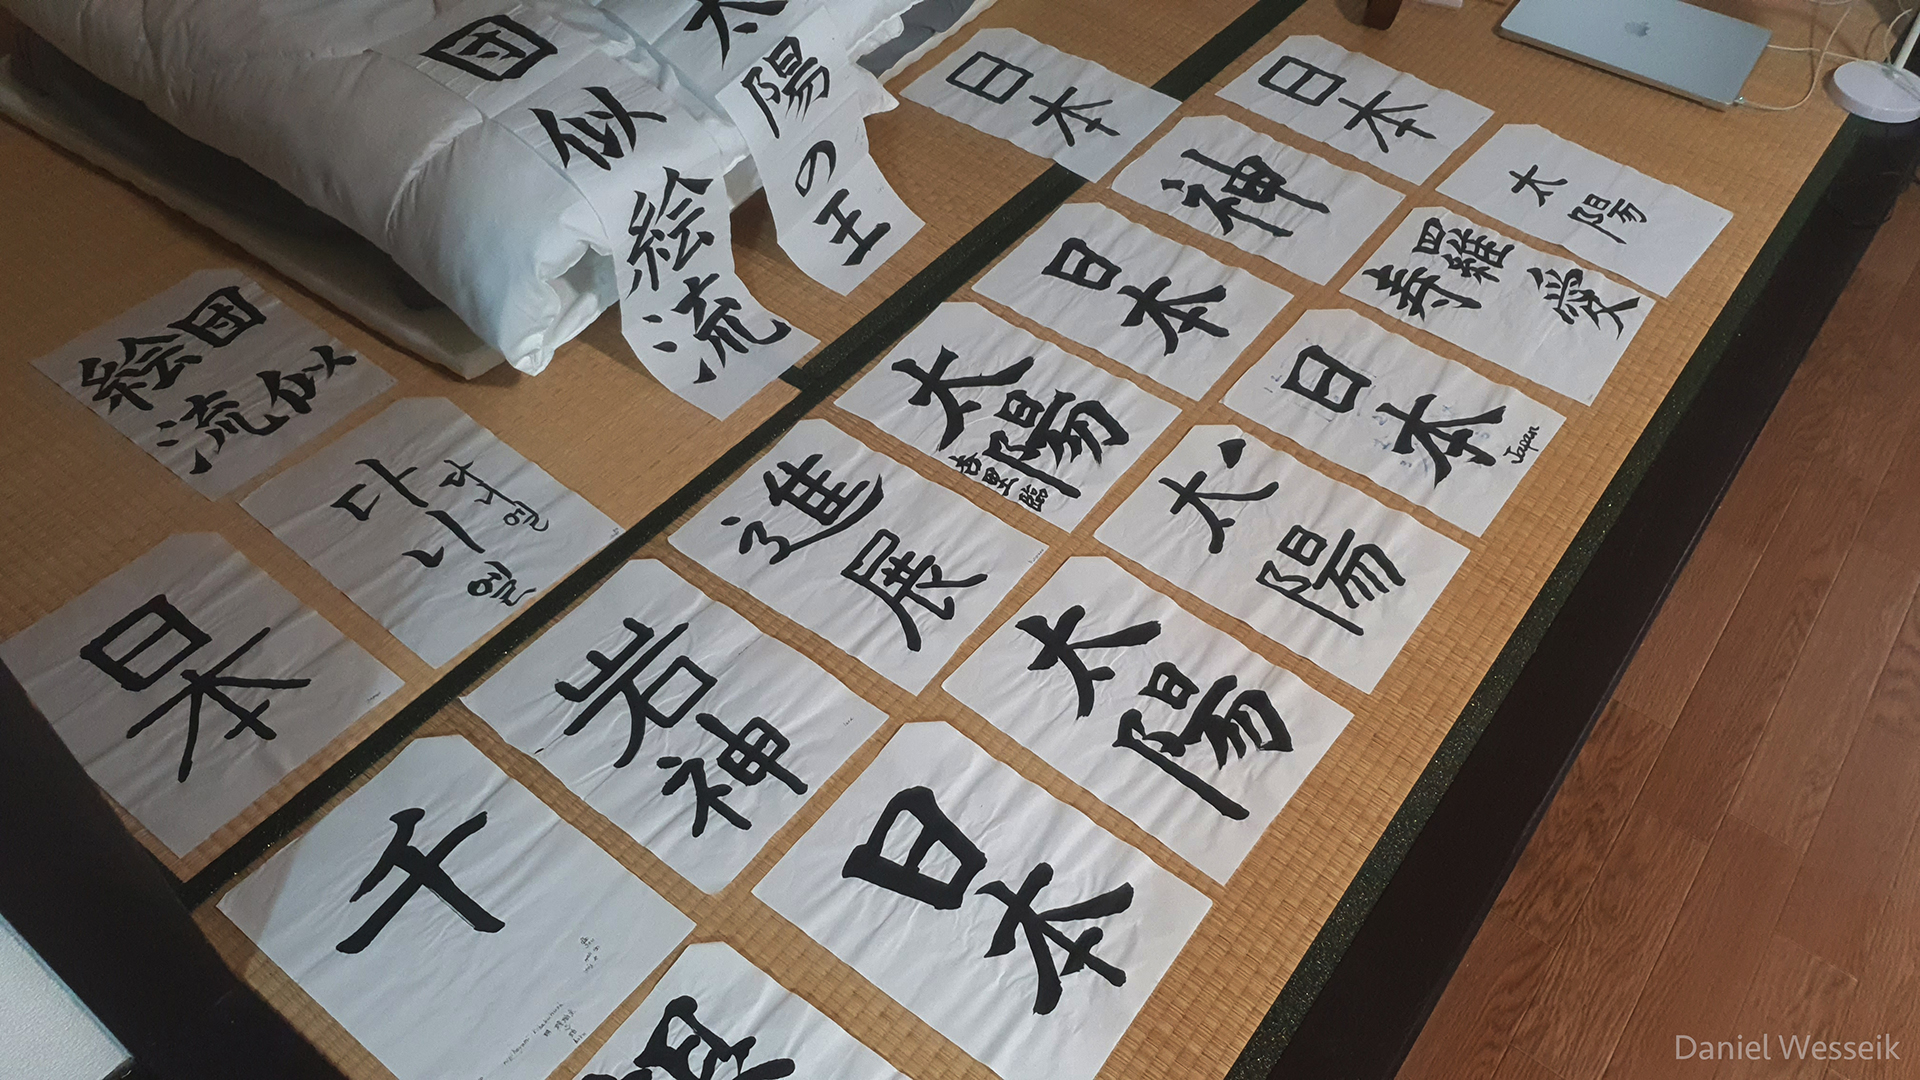 団
似
絵
流
太
陽
の
王
日本
日本
神
太陽
日本
羅 愛
寿
太陽
吉里臨
日本
Japan
絵団
流似
다 다니엘
니
엘
進展
太陽
日本
岩神
太陽
千
日本
Daniel Wesseik